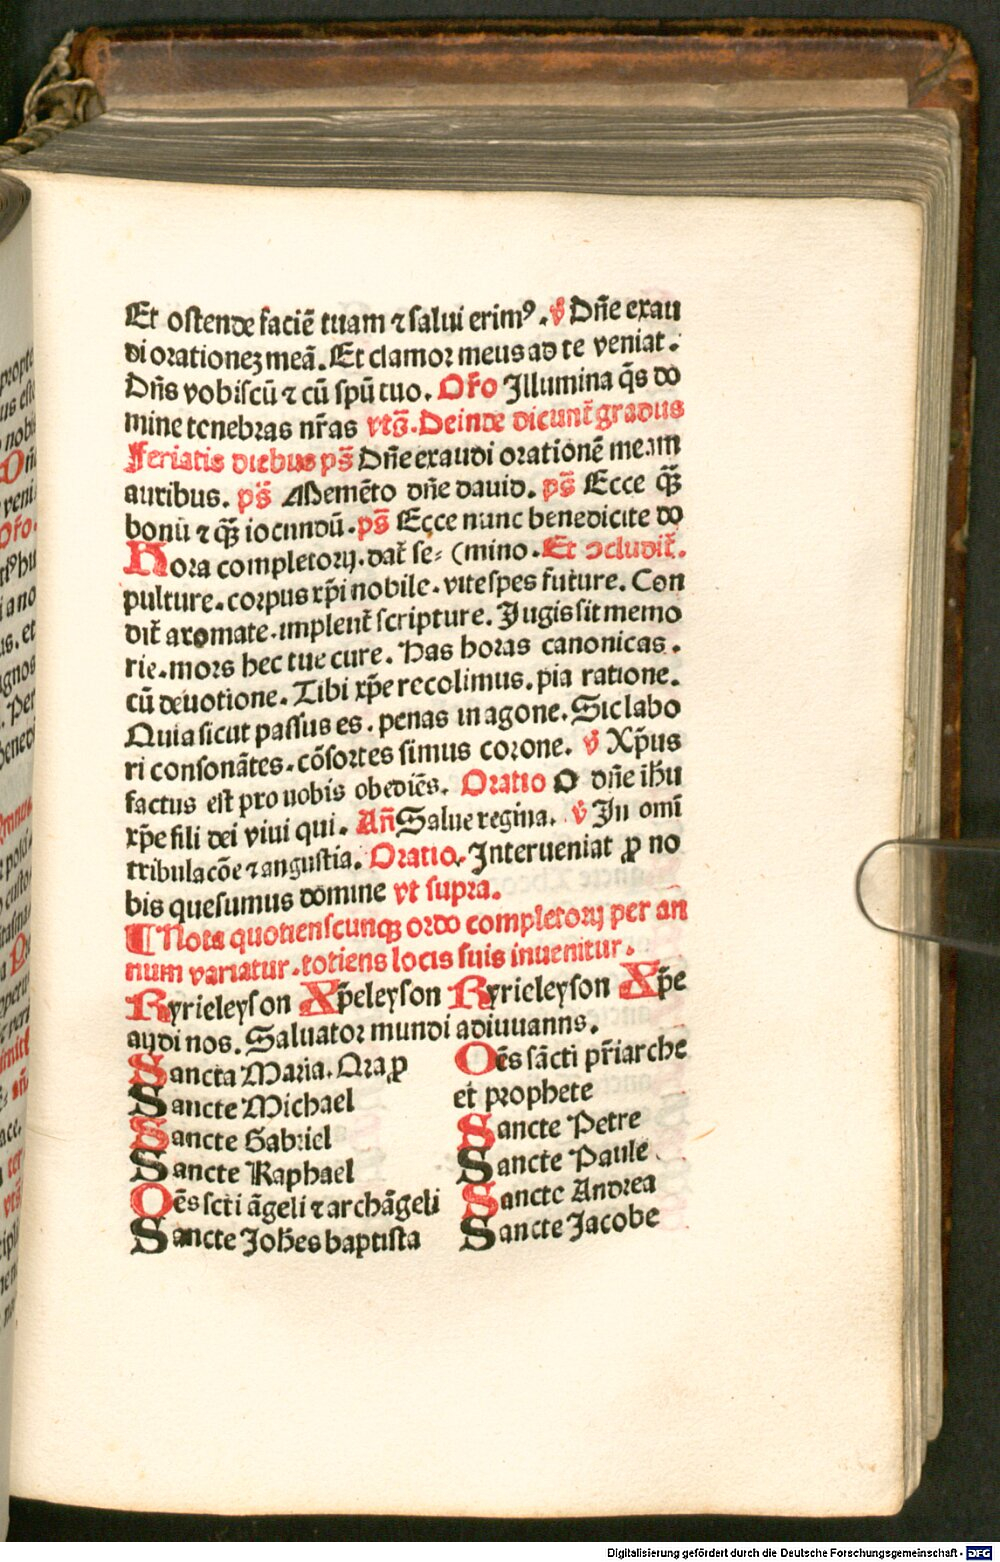 Et ostende faciē tuam ⁊ salui erimꝰ. ℣ Dn̄e exau
di orationeꝫ meā. Et clamor meus ad te veniat.
Dn̄s vobiscū ⁊ cū spū tuo. Or̄o Illumina q̄s do
mine tenebras nr̄as vts̄. Deinde dicunt̄ gradus
Feriatis diebus ps̄ Dn̄e exaudi orationē meam
auribus. ps̄ Memēto dn̄e dauid. ps̄ Ecce q̄ꝫ
bonū ⁊ q̄ꝫ iocundū. ps̄ Ecce nunc benedicite do
Hora completorij. dat̄ se⸗ (mino. Et ↄcludit̄.
pulture. corpus xp̄i nobile. vite spes future. Con
dit̄ aromate. implent̄ scripture. Jugis sit memo
rie. mors hec tue cure. Has horas canonicas.
cū deuotione. Tibi xp̄e recolimus. pia ratione.
Quia sicut passus es. penas in agone. Sic labo
ri consonātes. cōsortes simus corone. ℣ Xp̄us
factus est pro uobis obediēs. Oratio O dn̄e ih̄u
xp̄e fili dei viui qui. An̄ Salue regina. ℣ In om̄i
tribulacōe ⁊ angustia. Oratio. Interueniat ꝓ no
bis quesumus domine vt supra.
¶ Nota quotienscunqꝫ ordo completorij per an
num variatur. totiens locis suis inuenitur.
Kyrieleyson Xp̄eleyson Kyrieleyson Xp̄e
audi nos. Saluator mundi adiuuanns.
Sancta Maria. Ora ꝓ
Sancte Michael
Sancte Gabriel
Sancte Raphael
Oēs scti āgeli ⁊ archāgeli
Sancte Joh̄es baptista
Oēs sācti pr̄iarche
et prophete
Sancte Petre
Sancte Paule
Sancte Andrea
Sancte Jacobe
Digitalisierung gefördert durch die Deutsche Forschungsgemeinschaft - DFG